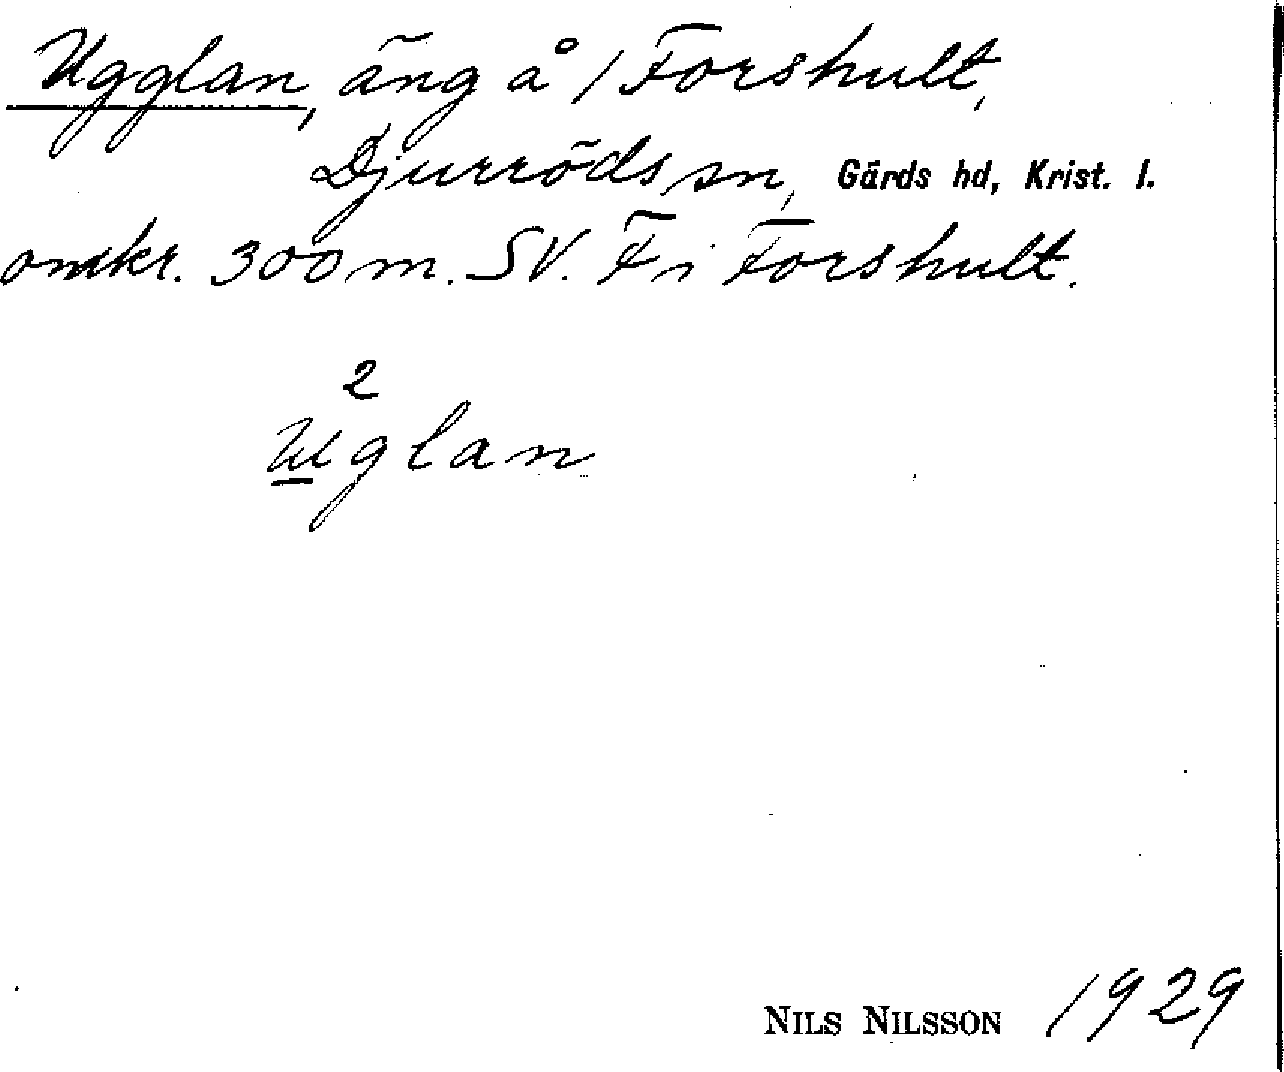 Ugglan, äng å / Forshult,
Djurröds sn, Gärds hd, Krist. l.
omkr. 300 m. SV. F i Forshult.
2
uglan
NILS NILSSON 1929